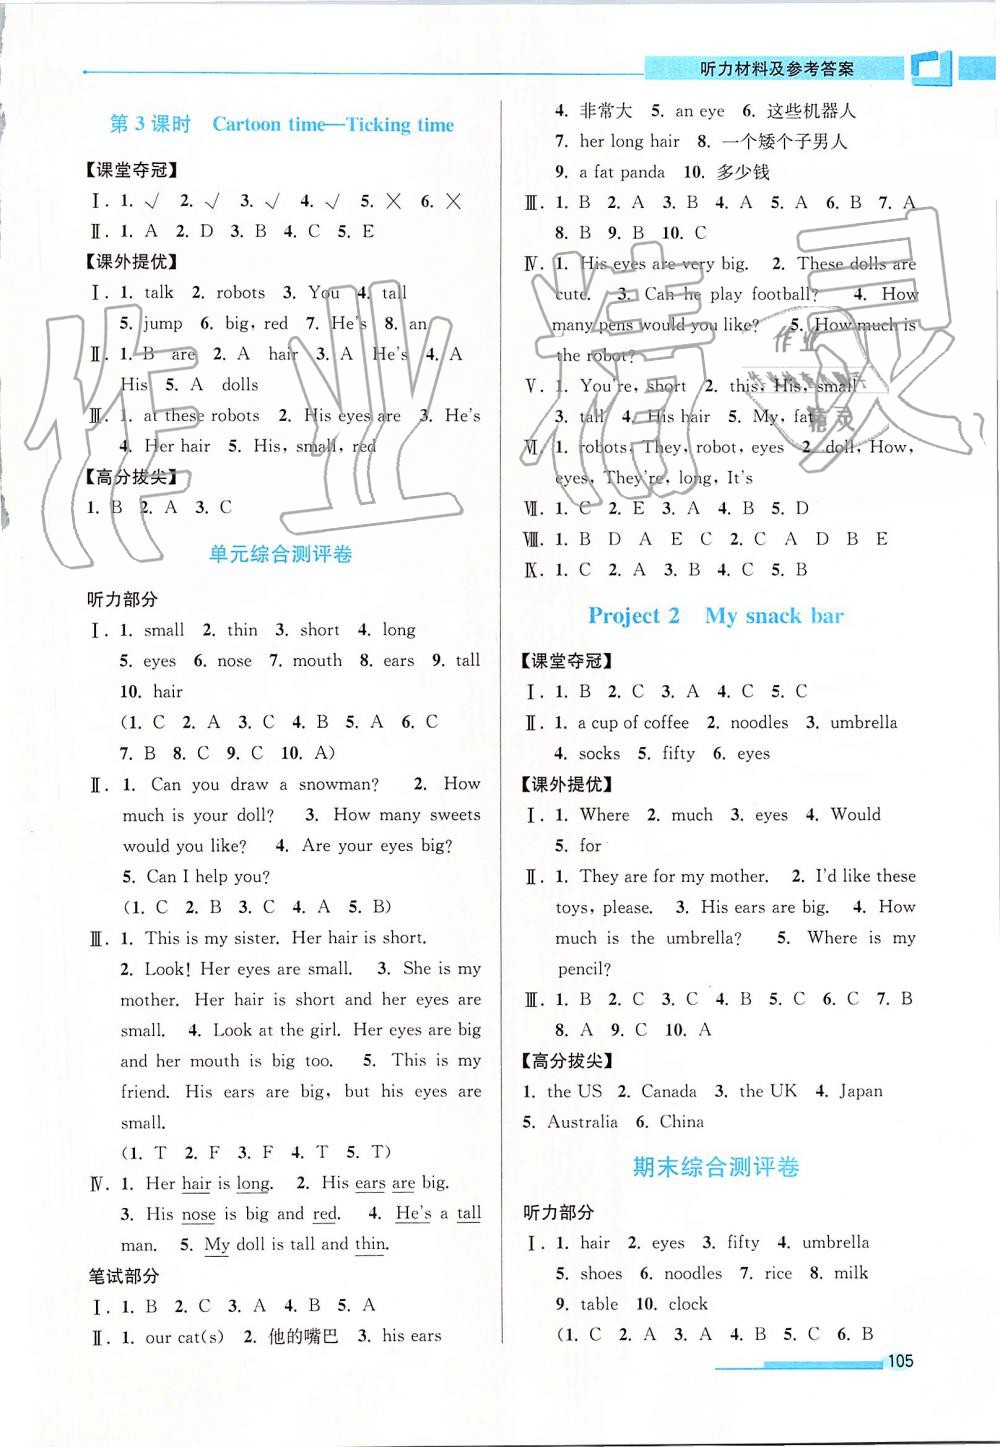 听力材料及参考答案
第 3 课时 Cartoon time—Ticking time
【课堂夺冠】
Ⅰ. 1. √ 2. √ 3. √ 4. √ 5. × 6. ×
Ⅱ. 1. A 2. D 3. B 4. C 5. E
【课外提优】
Ⅰ. 1. talk 2. robots 3. You 4. tall
5. jump 6. big, red 7. He's 8. an
Ⅱ. 1. B are 2. A hair 3. A He's 4. A
His 5. A dolls
Ⅲ. 1. at these robots 2. His eyes are 3. He's
4. Her hair 5. His, small, red
【高分拔尖】
1. B 2. A 3. C
单元综合测评卷
听力部分
Ⅰ. 1. small 2. thin 3. short 4. long
5. eyes 6. nose 7. mouth 8. ears 9. tall
10. hair
(1. C 2. A 3. C 4. B 5. A 6. C
7. B 8. C 9. C 10. A)
Ⅱ. 1. Can you draw a snowman? 2. How
much is your doll? 3. How many sweets
would you like? 4. Are your eyes big?
5. Can I help you?
(1. C 2. B 3. C 4. A 5. B)
Ⅲ. 1. This is my sister. Her hair is short.
2. Look! Her eyes are small. 3. She is my
mother. Her hair is short and her eyes are
small. 4. Look at the girl. Her eyes are big
and her mouth is big too. 5. This is my
friend. His ears are big, but his eyes are
small.
(1. T 2. F 3. F 4. T 5. T)
Ⅳ. 1. Her hair is long. 2. His ears are big.
3. His nose is big and red. 4. He's a tall
man. 5. My doll is tall and thin.
笔试部分
Ⅰ. 1. B 2. C 3. A 4. B 5. A
Ⅱ. 1. our cat(s) 2. 他的嘴巴 3. his ears
4. 非常大 5. an eye 6. 这些机器人
7. her long hair 8. 一个矮个子男人
9. a fat panda 10. 多少钱
Ⅲ. 1. B 2. A 3. B 4. A 5. A 6. B 7. A
8. B 9. B 10. C
Ⅳ. 1. His eyes are very big. 2. These dolls are
cute. 3. Can he play football? 4. How
many pens would you like? 5. How much is
the robot?
Ⅴ. 1. You're, short 2. this, His, small
3. tall 4. His hair 5. My, fat
Ⅵ. 1. robots, They, robot, eyes 2. doll, How,
eyes, They're, long, It's
Ⅶ. 1. C 2. E 3. A 4. B 5. D
Ⅷ. 1. B D A E C 2. C A D B E
Ⅸ. 1. C 2. A 3. B 4. C 5. B
Project 2 My snack bar
【课堂夺冠】
Ⅰ. 1. B 2. C 3. A 4. C 5. C
Ⅱ. 1. a cup of coffee 2. noodles 3. umbrella
4. socks 5. fifty 6. eyes
【课外提优】
Ⅰ. 1. Where 2. much 3. eyes 4. Would
5. for
Ⅱ. 1. They are for my mother. 2. I'd like these
toys, please. 3. His ears are big. 4. How
much is the umbrella? 5. Where is my
pencil?
Ⅲ. 1. B 2. C 3. C 4. B 5. C 6. C 7. B
8. A 9. C 10. A
【高分拔尖】
1. the US 2. Canada 3. the UK 4. Japan
5. Australia 6. China
期末综合测评卷
听力部分
Ⅰ. 1. hair 2. eyes 3. fifty 4. umbrella
5. shoes 6. noodles 7. rice 8. milk
9. table 10. clock
(1. C 2. A 3. A 4. C 5. C 6. B
105
作业精灵